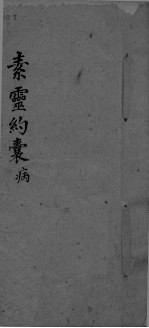 素靈約囊病